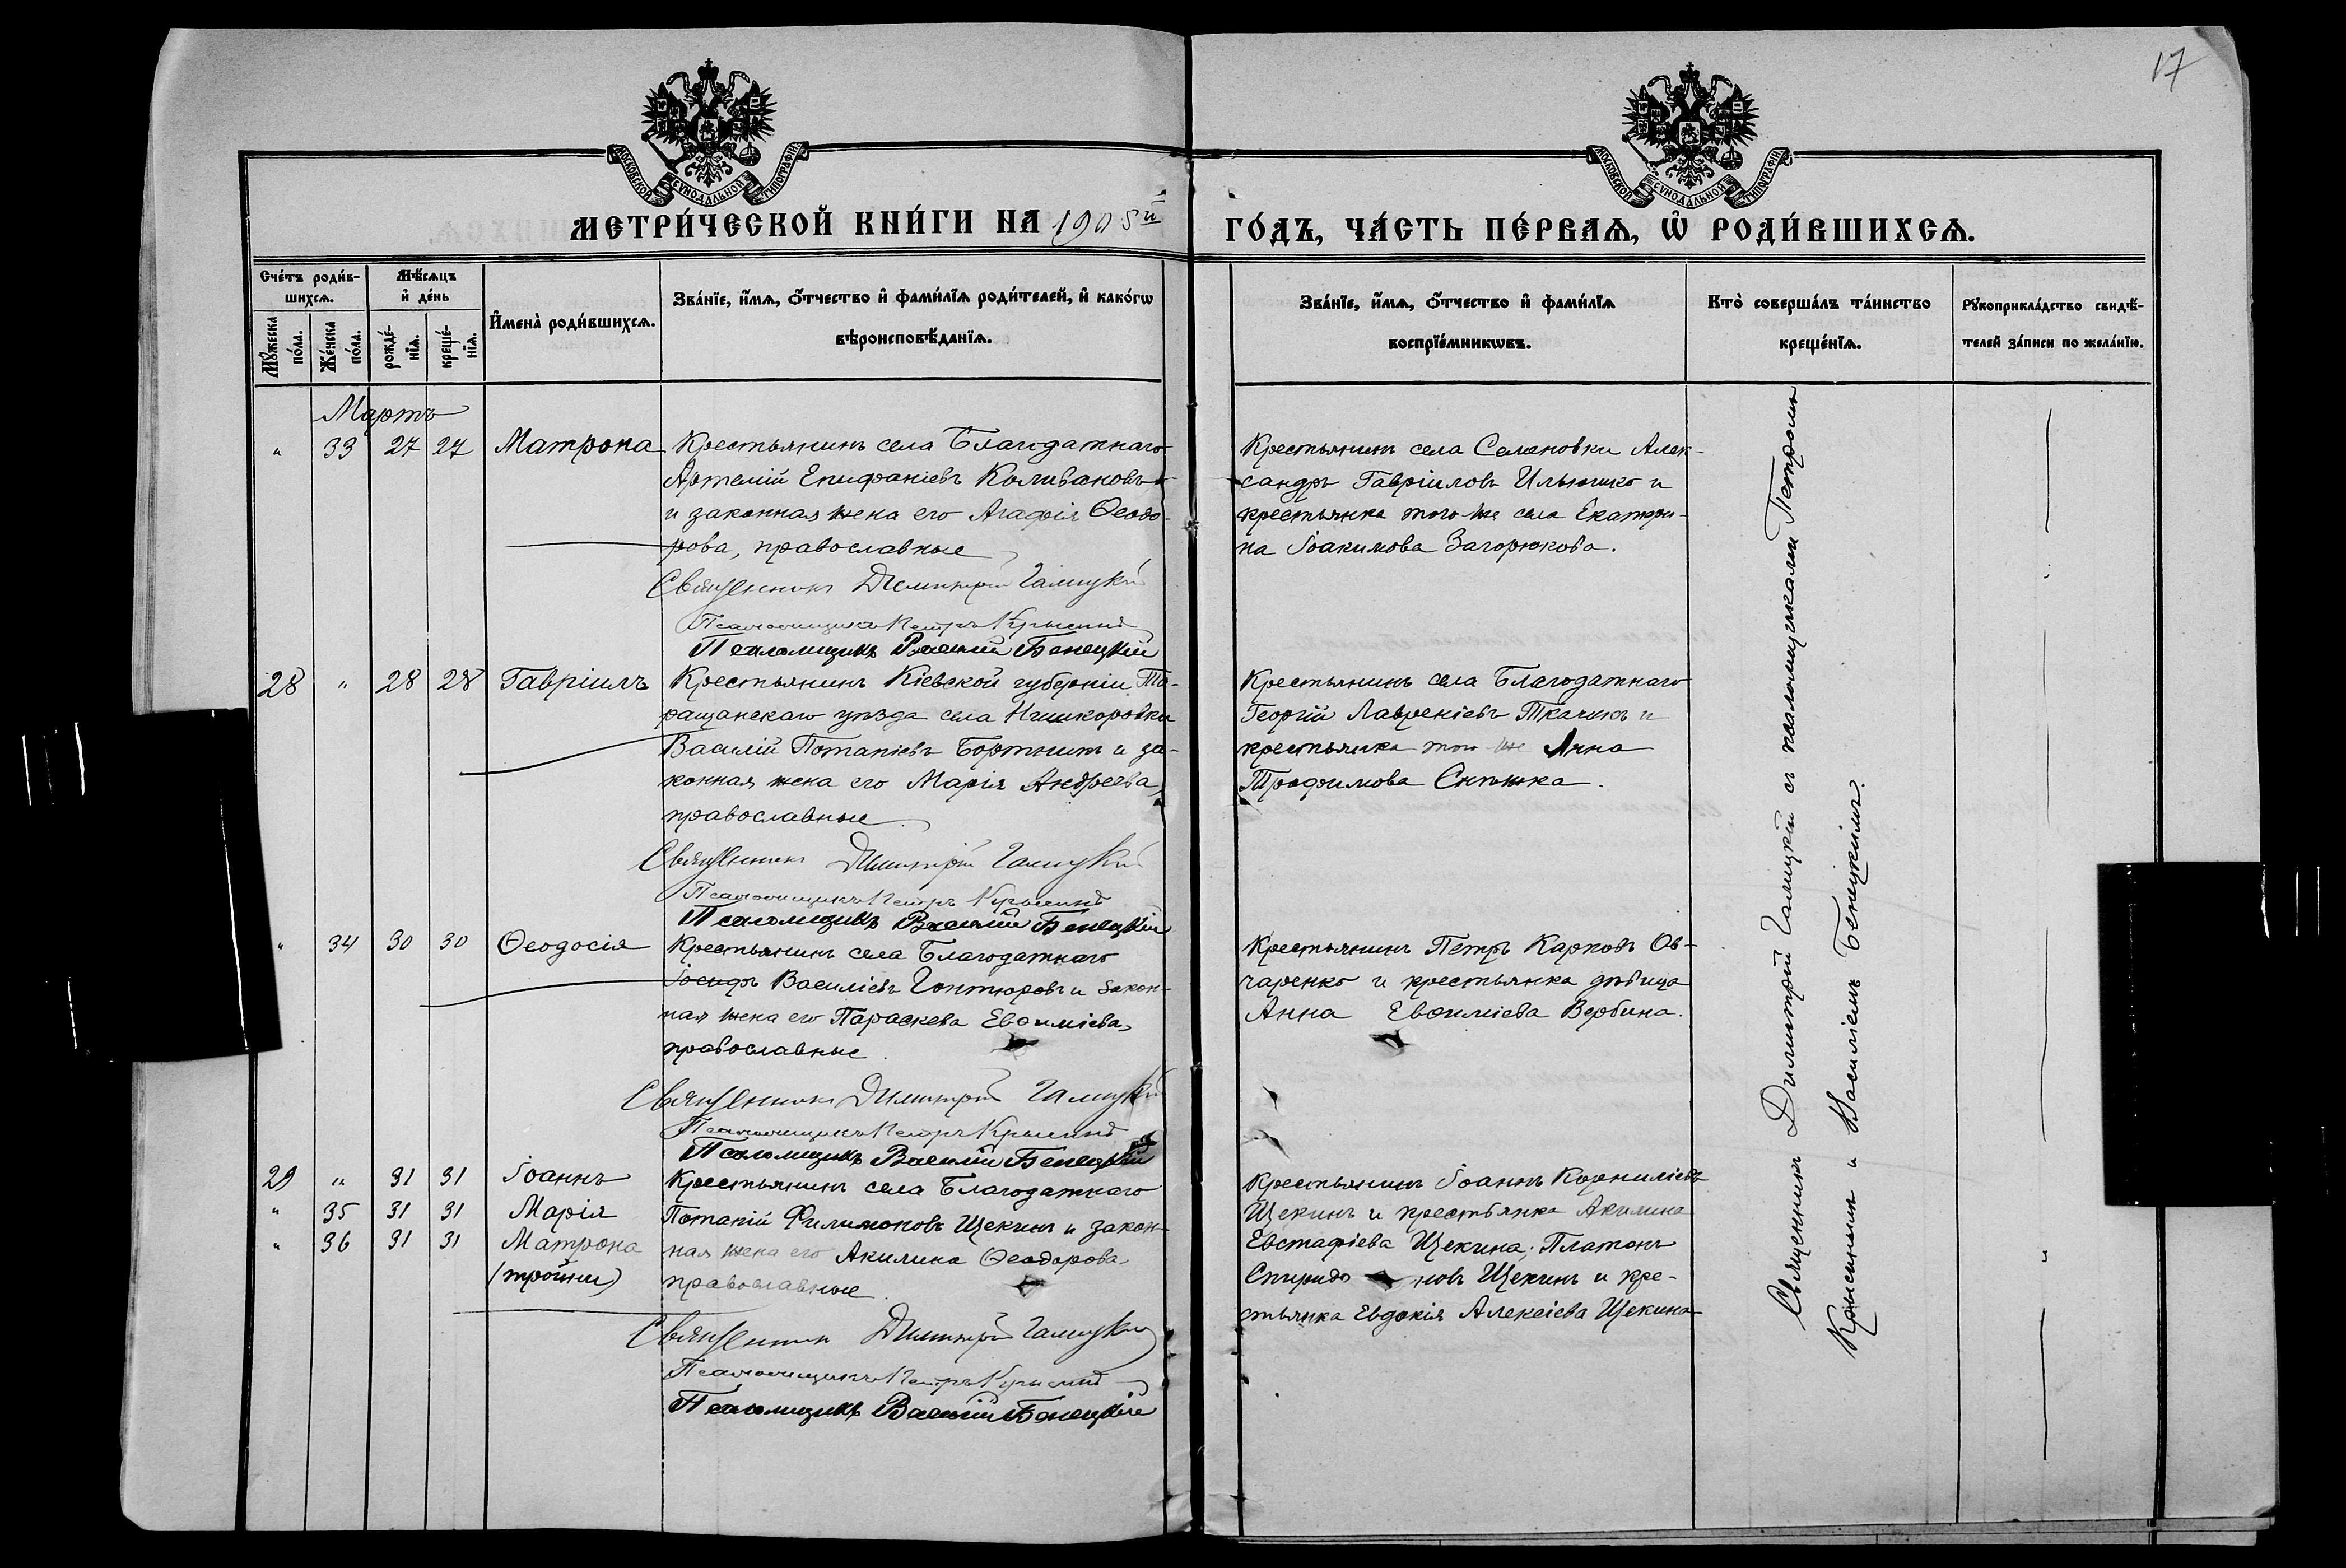 17
МОСКОВСКОЙ СѴНОДАЛЬНОЙ ТИПОГРАФІИ
МОСКОВСКОЙ СѴНОДАЛЬНОЙ ТИПОГРАФІИ
МЕТРИ́ЧЕСКОЙ КНИ́ГИ НА 1905й
ГО́ДЪ, ЧА́СТЬ ПЕ́РВАѦ, Ѡ҆ РОДИ́ВШИХСѦ.
Счетъ роди́в-
шихсѧ.
Мꙋжеска по́ла.
Же́нска по́ла.
Мѣ́сѧцъ
и҆ де́нь
рожде́-
нїѧ.
креще́-
нїѧ.
И҆мена̀ роди́вшихсѧ.
Зва́нїе, и҆́мѧ, ѻ҆́тчество и҆ фами́лїѧ роди́телей, и҆ како́гѡ
вѣроисповѣ́данїѧ.
Зва́нїе, и҆́мѧ, ѻ҆́тчество и҆ фами́лїѧ
воспрїе́мникѡвъ.
Кто̀ соверша́лъ та́инство
креще́нїѧ.
Рꙋкоприкла́дство свидѣ́-
телей за́писи по жела́нїю.
Мартъ
" 33 27 27 Матрона Крестьянинъ села Благодатнаго
Артемій Епифаніевъ Коливановъ
и законная жена его Агафія Ѳеодо-
рова, православные
Священникъ Димитрій Галицкій
Псаломщикъ Петръ Крысинъ
Псаломщикъ Василій Бенецкій
Крестьянинъ села Семеновки Алек-
сандръ Гавріиловъ Ильюшко и
крестьянка того же села Екатери-
на Іоакимова Загорюкова.
28 " 28 28 Гавріилъ Крестьянинъ Кіевской губерніи Та-
ращанскаго уѣзда села
Василій Потапіевъ Бортникъ и за-
конная жена его Марія Андреева,
православные
Священникъ Димитрій Галицкій
Псаломщикъ Петръ Крысинъ
Псаломщикъ Василій Бенецкій
Крестьянинъ села Благодатнаго
Георгій Лавреніевъ Ткачикъ и
крестьянка того же Анна
Трофимова
" 34 30 30 Ѳеодосія Крестьянинъ села Благодатнаго
Іосифъ Василіевъ Гонтюровъ и закон-
ная жена его Параскева Евѳиміева,
православные.
Священникъ Димитрій Галицкій
Псаломщикъ Петръ Крысинъ
Псаломщикъ Василій Бенецкій
Крестьянинъ Петръ Карповъ Ов-
чаренко и крестьянка дѣвица
Анна Евѳиміева Вербина.
29 " 31 31 Іоаннъ Крестьянинъ села Благодатнаго
" 35 31 31 Марія Потапій Филимоновъ Щекинъ и закон-
" 36 31 31 Матрона ная жена его Акилина Ѳеодорова
(тройни) православные.
Священникъ Димитрій Галицкій
Псаломщикъ Петръ Крысинъ
Псаломщикъ Василій Бенецкій
Крестьянинъ Іоаннъ Корниліевъ
Щекинъ и крестьянка Акилина
Евстафіева Щекина; Платонъ
Спиридоновъ Щекинъ и кре-
стьянка Евдокія Алексіева Щекина
Священникъ Димитрій Галицкій съ псаломщиками Петромъ
Крысинымъ и Василіемъ Бенецкимъ.